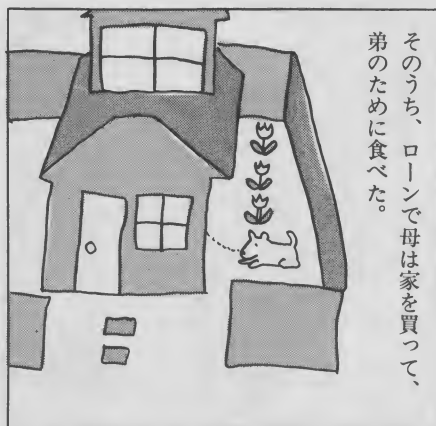 そのうち、ローンで母は家を買って、
弟のために食べた。